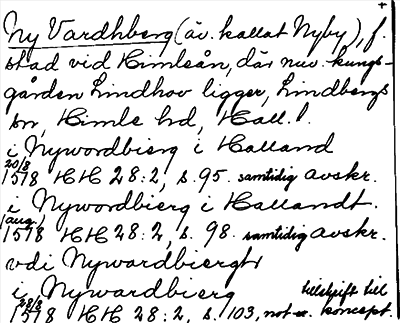 Ny Vardhberg (äv. kallat Nyby), f.
stad vid Himleån, där nuv. kungs-
gården Lindhov ligger, Lindbergs
sn, Himle hd, Hall. l.
i Nywordbierg i Halland
20/8 1578 HH 28:2, s. 95. samtidig avskr.
i Nywordbierg i Hallandt.
aug. 1578 HH 28:2, s. 98. samtidig avskr.
vdi Nywardbiergh
i Nywardbierg
28/8 1578 HH 28:2, s. 103, not. koncept.